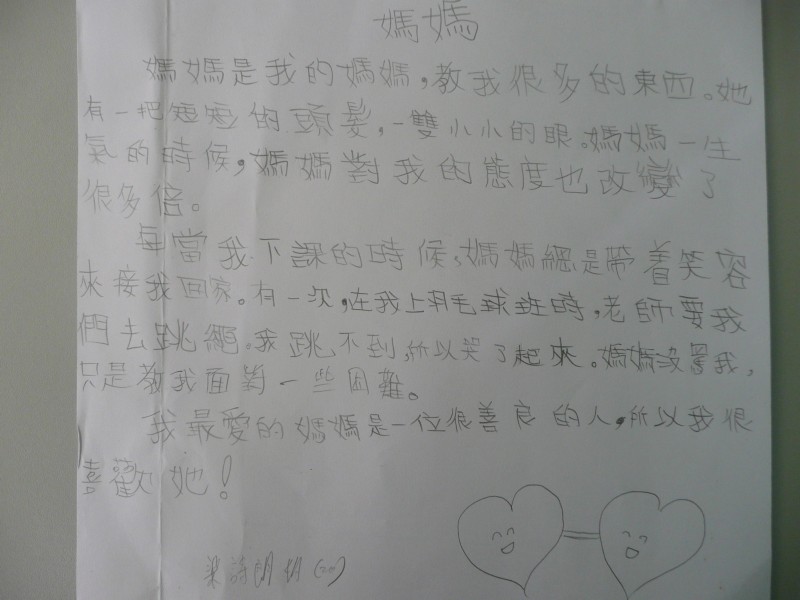 媽媽
媽媽是我的媽媽，教我很多的東西。她
有一把短短的頭髮，一雙小小的眼。媽媽一生
氣的時候，媽媽對我的態度也改變了
很多倍。
每當我下課的時候，媽媽總是帶着笑容
來接我回家。有一次，在我上羽毛球班時，老師要我
們去跳繩。我跳不到，所以哭了起來。媽媽沒罵我，
只是教我面對一些困難。
我最愛的媽媽是一位很善良的人，所以我很
喜歡她！
梁詩朗